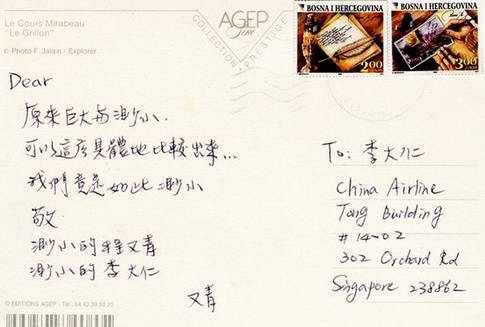 Le Cours Mirabeau
"Le Grillon"
© Photo F. Jalain - Explorer
AGEP
COLLECTION PRESTIGE
BOSNA I HERCEGOVINA
2.00
BOSNA I HERCEGOVINA
3.00
Dear
原來巨大與渺小
可以這度具體地比較出來...
我們竟是如此渺小
敬
渺小的程又青
渺小的李大仁
又青
To: 李大仁
China Airline
Tong Building
#14-02
302 Orchard Rd
Singapore 238862
© EDITIONS AGEP - Tél : 04.42.39.50.20